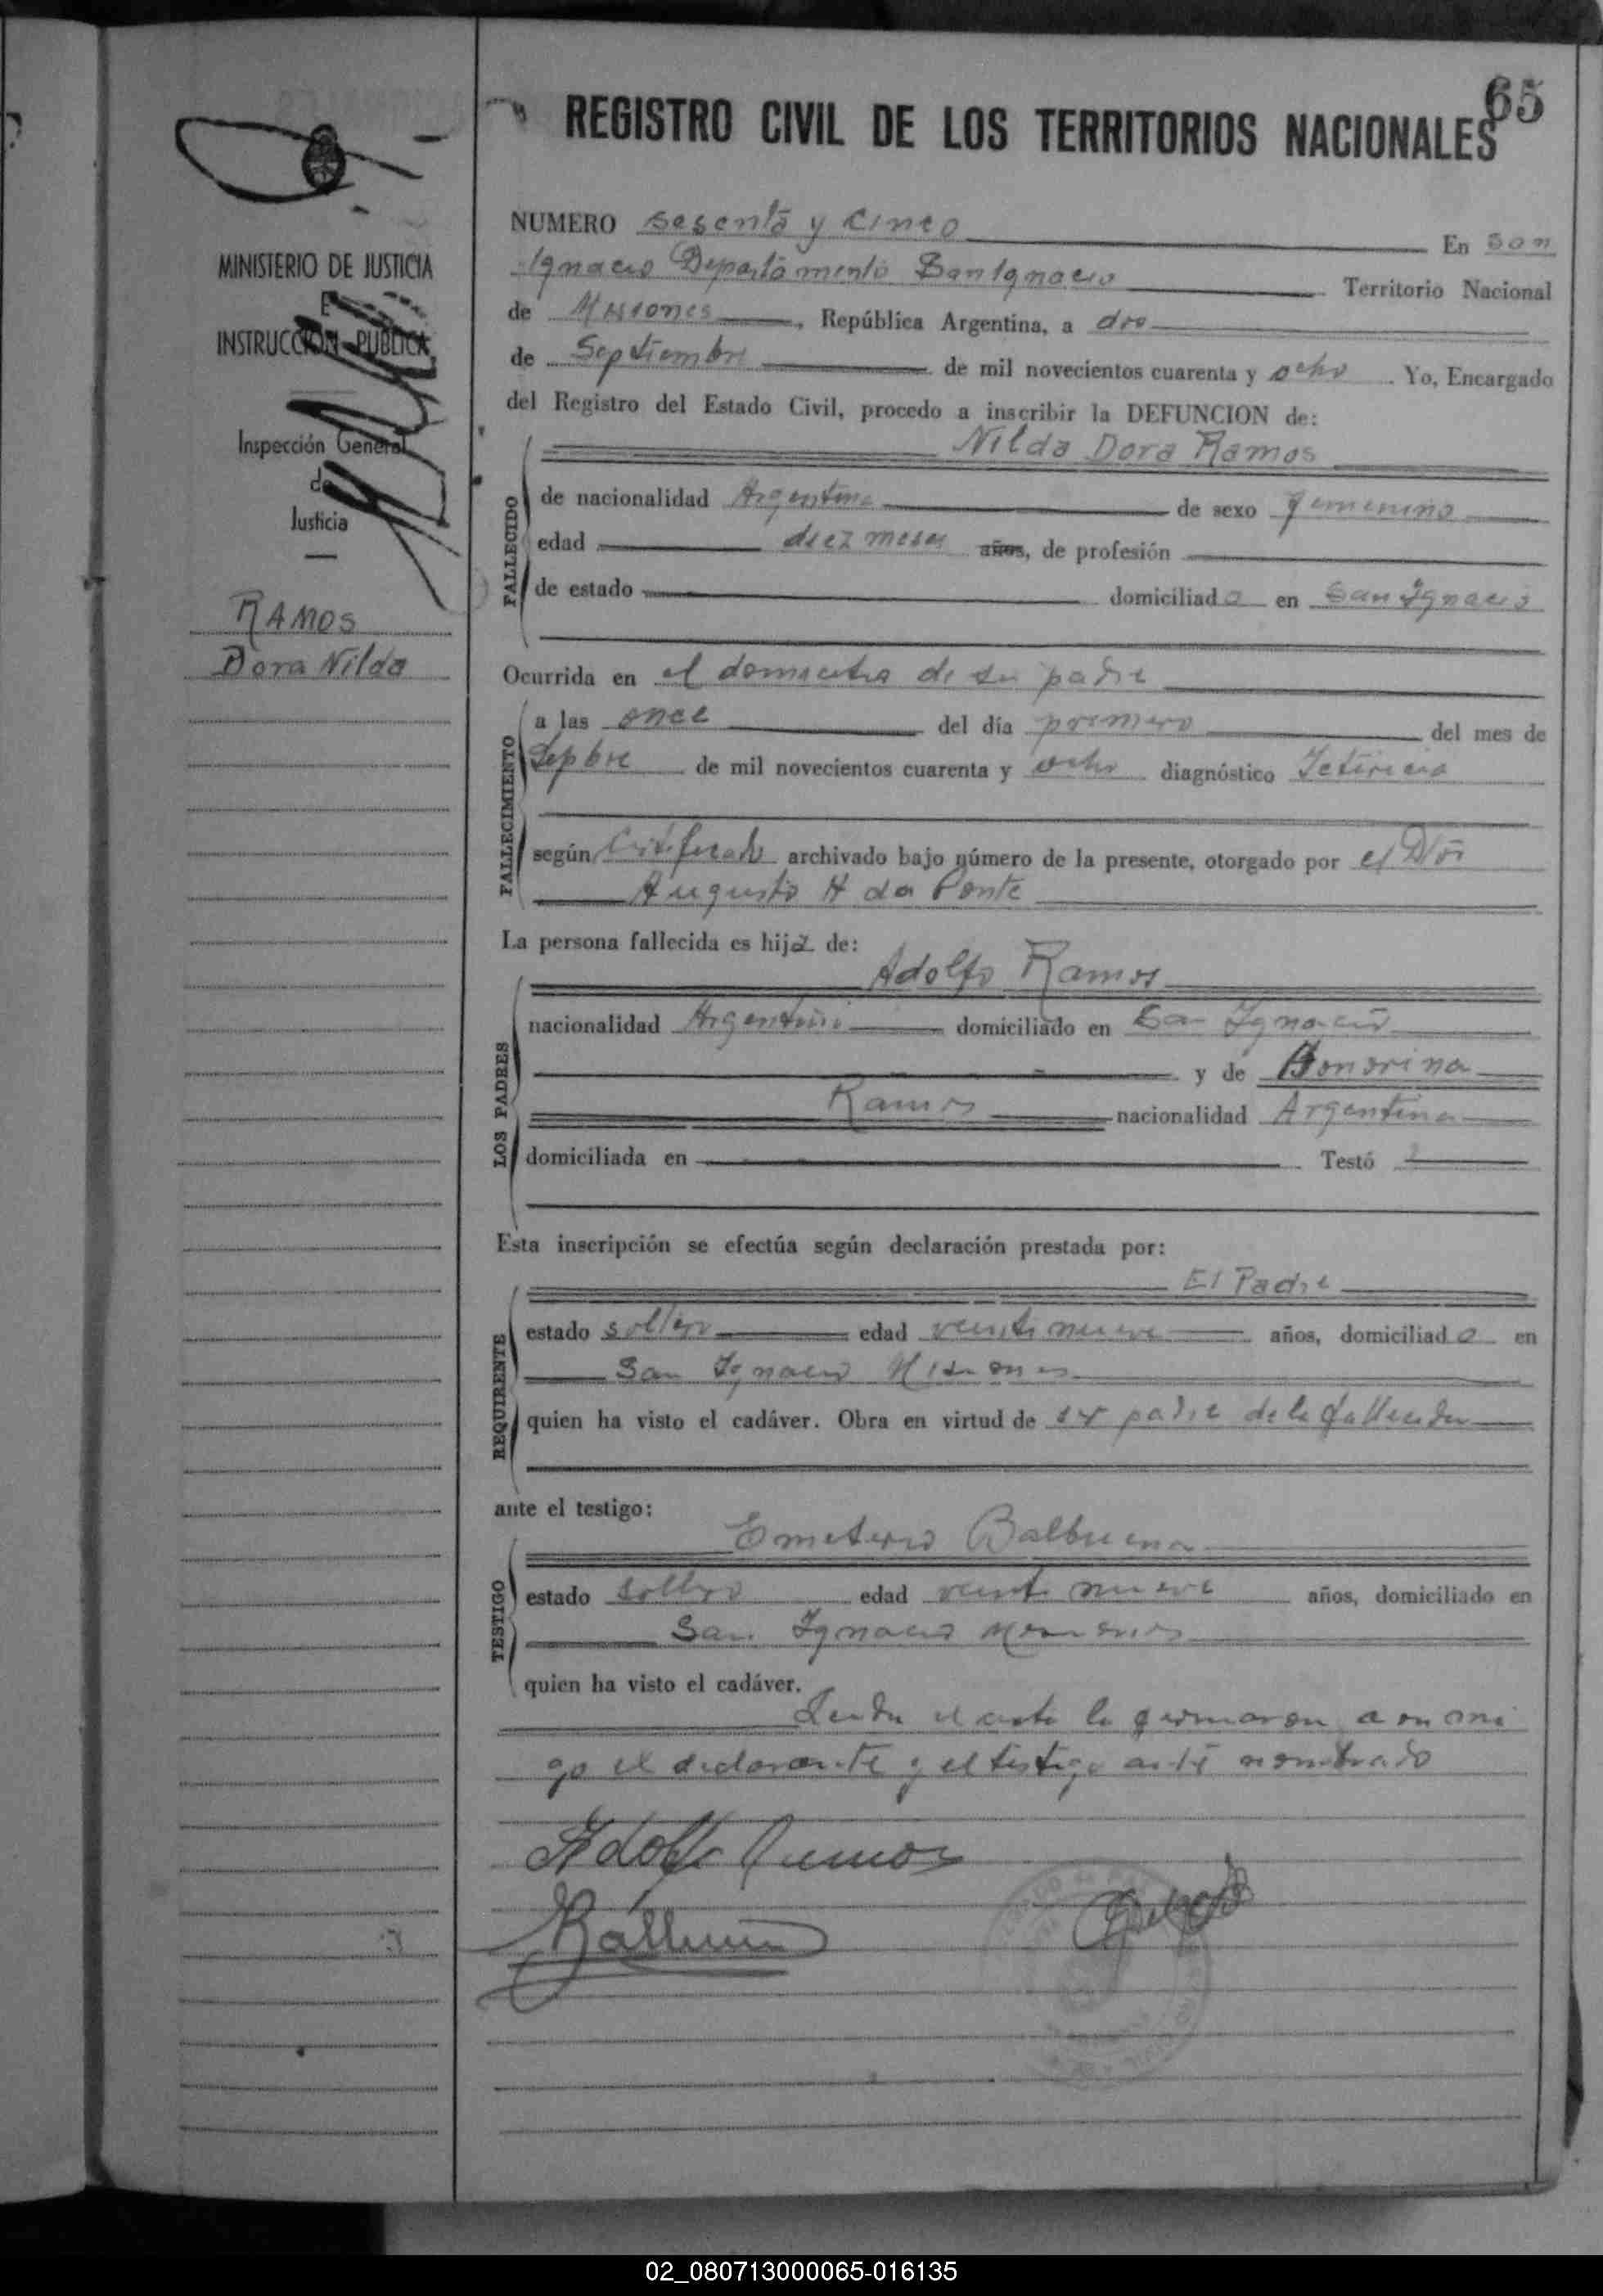 65
REGISTRO CIVIL DE LOS TERRITORIOS NACIONALES
MINISTERIO DE JUSTICIA
E
INSTRUCCION PUBLICA
Inspección General
de
Justicia
RAMOS
Dora Nilda
NUMERO sesenta y cinco En San
Ignacio Departamento San Ignacio Territorio Nacional
de Misiones, República Argentina, a dos
de Septiembre de mil novecientos cuarenta y ocho Yo, Encargado
del Registro del Estado Civil, procedo a inscribir la DEFUNCION de:
Nilda Dora Ramos
FALLECIDO
de nacionalidad Argentina de sexo femenino
edad diez meses años, de profesión
de estado domiciliada en San Ignacio
Ocurrida en el domicilio de su padre
FALLECIMIENTO
a las once del día primero del mes de
Sepbre de mil novecientos cuarenta y ocho diagnóstico Ictiricia
según Certificado archivado bajo número de la presente, otorgado por el
Augusto H da Ponte
La persona fallecida es hija de:
Adolfo Ramos
LOS PADRES
nacionalidad Argentino domiciliado en San Ignacio
y de Honorina
Ramos nacionalidad Argentina
domiciliada en Testó
Esta inscripción se efectúa según declaración prestada por:
El Padre
REQUIRENTE
estado soltero edad veintinueve años, domiciliado en
San Ignacio Misiones
quien ha visto el cadáver. Obra en virtud de ser padre de la fallecida
ante el testigo:
Emeterio Balbuena
TESTIGO
estado soltero edad veinti nueve años, domiciliado en
San Ignacio Misiones
quien ha visto el cadáver.
Leida el acta la firmaron con mi
go el declarante y el testigo ante nombrado
Adolfo Ramos
Balbuena
02_080713000065-016135